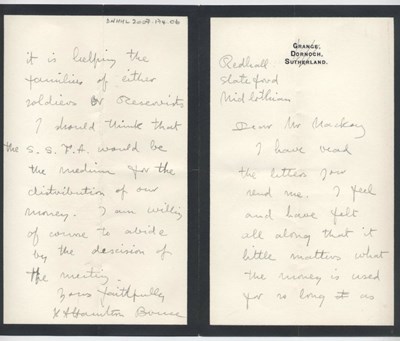 GRANGE,
DORNOCH,
SUTHERLAND.
Redhall
Slateford
Midlothian
Dear Mr Mackay
I have read
the letters you
send me. I feel
and have felt
all along that it
little matters what
the money is used
for so long as
it is helping the
families of either
soldiers or Reservists
I should think that
the S. S. F. A. would be
the medium for the
distribution of our
money. I am willing
of course to abide
by the descision of
the meeting.
Yours faithfully
Hamilton